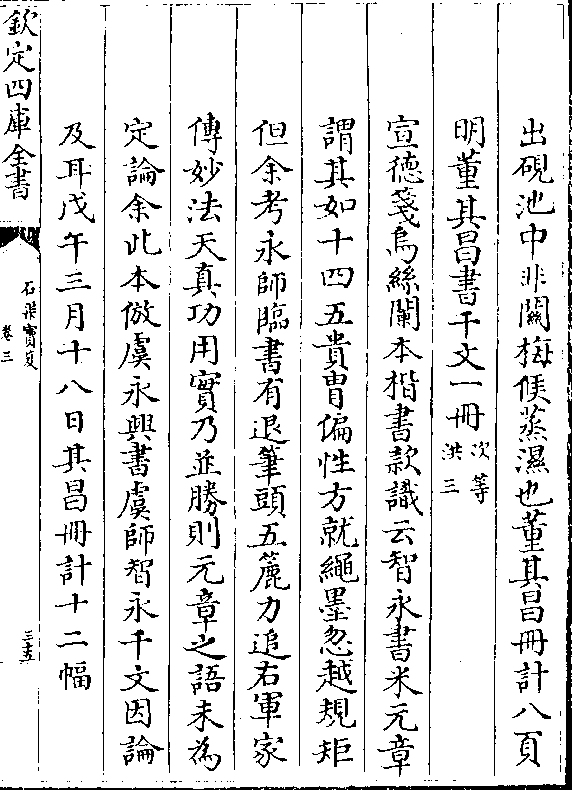 出硯池中非關梅候蒸濕也董其昌冊計八頁
明董其昌書千文一冊次等洪三
宣德箋烏絲闌本楷書款識云智永書米元章
謂其如十四五貴胄偏性方就繩墨忽越規矩
但余考永師臨書有退筆頭五簏力追右軍家
傳妙法天真功用實乃並勝則元章之語未為
定論余此本倣虞永興書虞師智永千文因論
及耳戊午三月十八日其昌冊計十二幅
欽定四庫全書
石渠寶笈
卷三
三十五